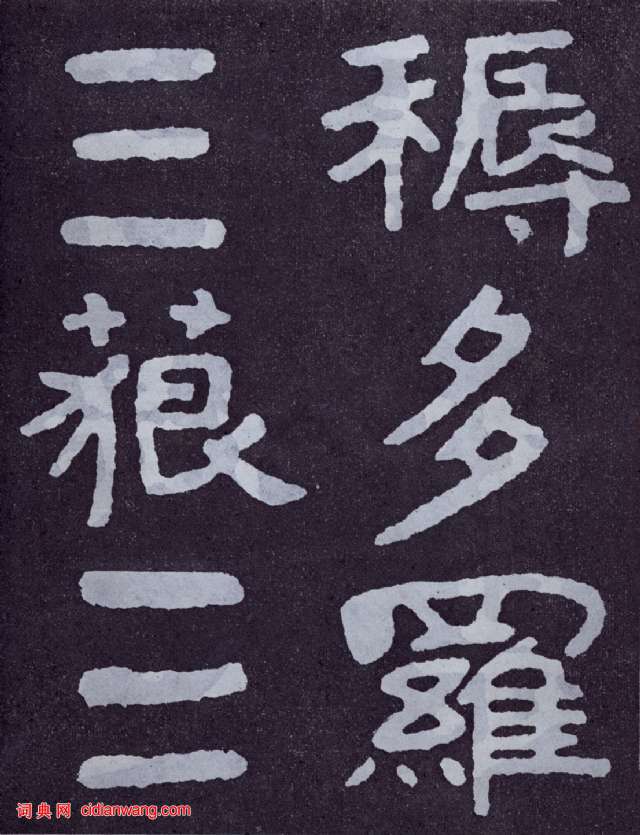 耨多羅
三藐三
词典网 cidianwang.com